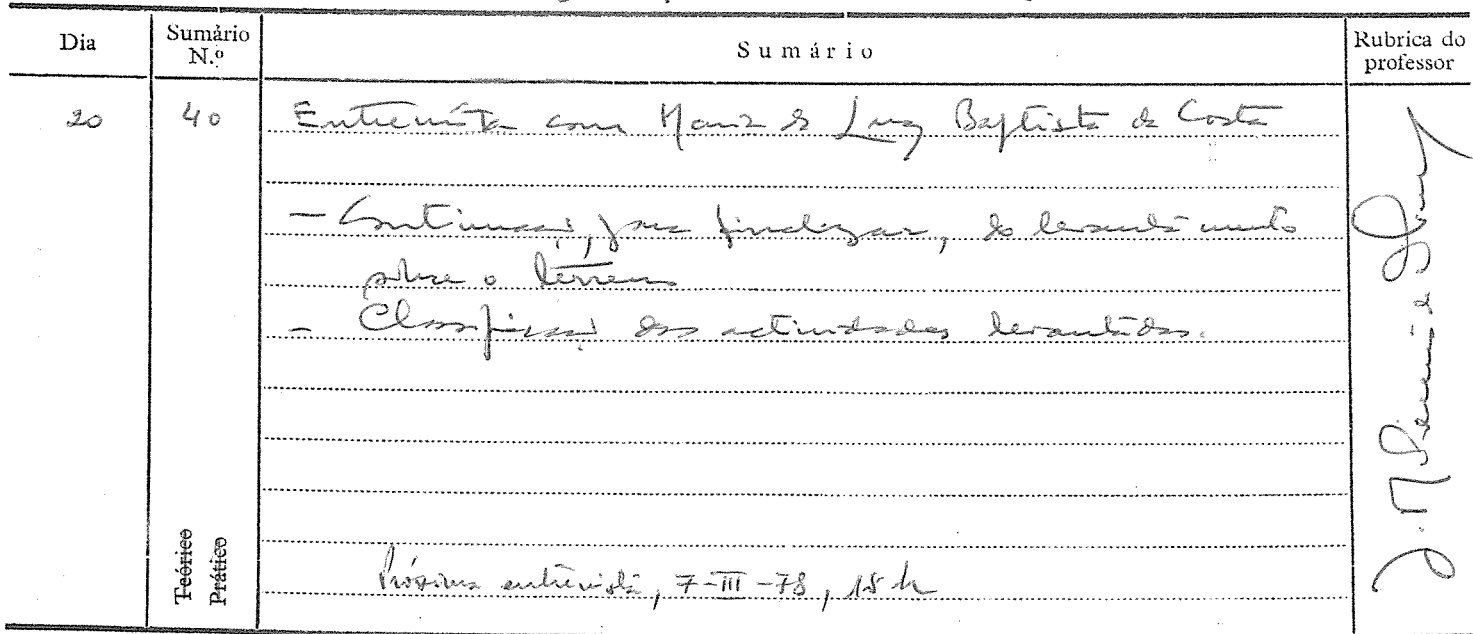 Dia
Sumário N.º
Sumário
Rubrica do professor
20
40
Entrevista com Maria da Luz Baptista da Costa
- Continuação, para finalizar, do levantamento
sobre o terreno
- Classificação das actividades levantadas.
Teórico
Prático
Próxima entrevista, 7-III-78, 15 h